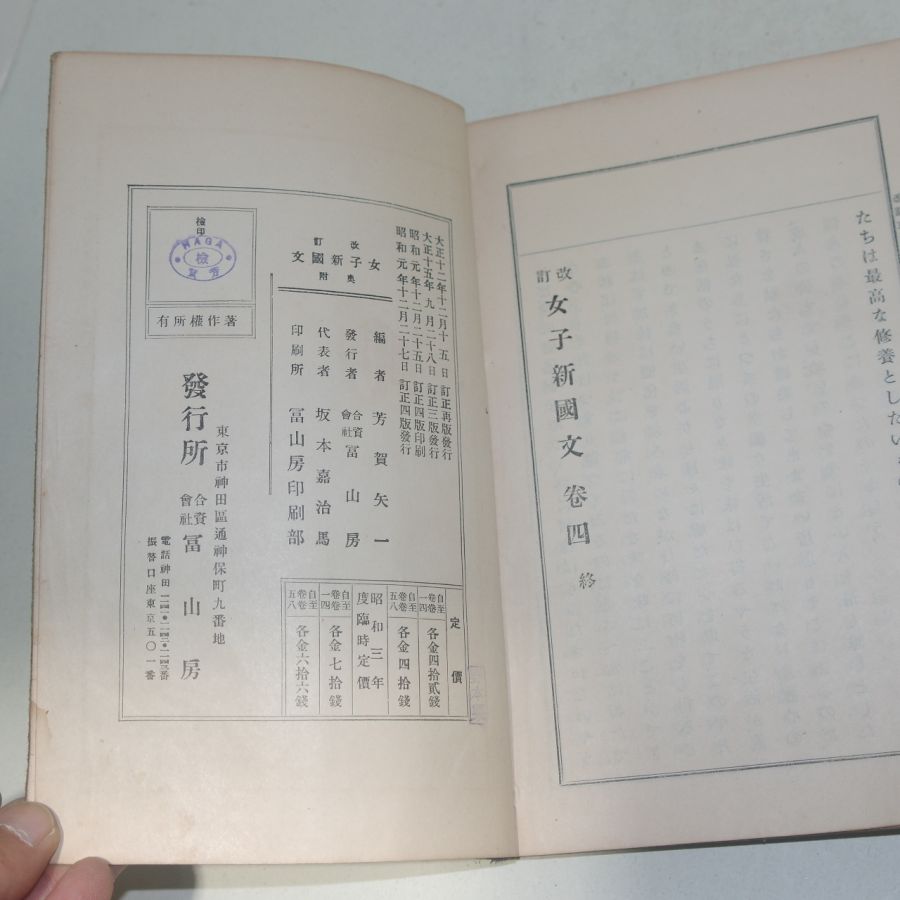 たちは最高な修養としたい
改訂 女子新國文 卷四 終
大正十二年十二月十五日 訂正再版發行
大正十五年九月二十八日 訂正三版發行
昭和元年十二月二十五日 訂正四版印刷
昭和元年十二月二十七日 訂正四版發行
改訂 女子新國文
奥附
編者 芳賀矢一
發行者 合資會社 冨山房
代表者 坂本嘉治馬
印刷所 冨山房印刷部
定價
自卷一至卷四 各金四拾貳錢
自卷五至卷八 各金四拾錢
昭和三年度臨時定價
自卷一至卷四 各金七拾錢
自卷五至卷八 各金六拾六錢
檢印
HAGA
檢
著作權所有
東京市神田區通神保町九番地
發行所 合資會社 冨山房
振替口座東京五〇一番